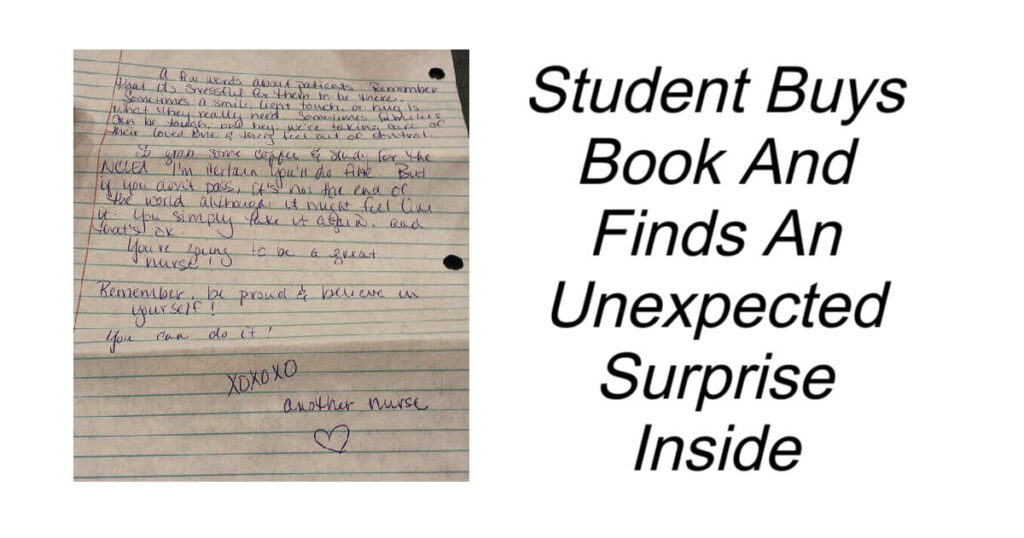 A few words about patients. Remember
that it's stressful for them to be there.
Sometimes a smile, touch, or hug is
what they really need. Sometimes families
can be tough, but hey, we're taking care of
their loved one & they feel out of control.
So grab some coffee & study for the
NCLEX I'm certain you'll do fine. But
if you don't pass, it's not the end of
the world although it might feel like
it. You simply take it again, and
that's ok.
You're going to be a great
nurse!
Remember, be proud & believe in
yourself!
You can do it!
XOXOXO
another nurse
Student Buys
Book And
Finds An
Unexpected
Surprise
Inside